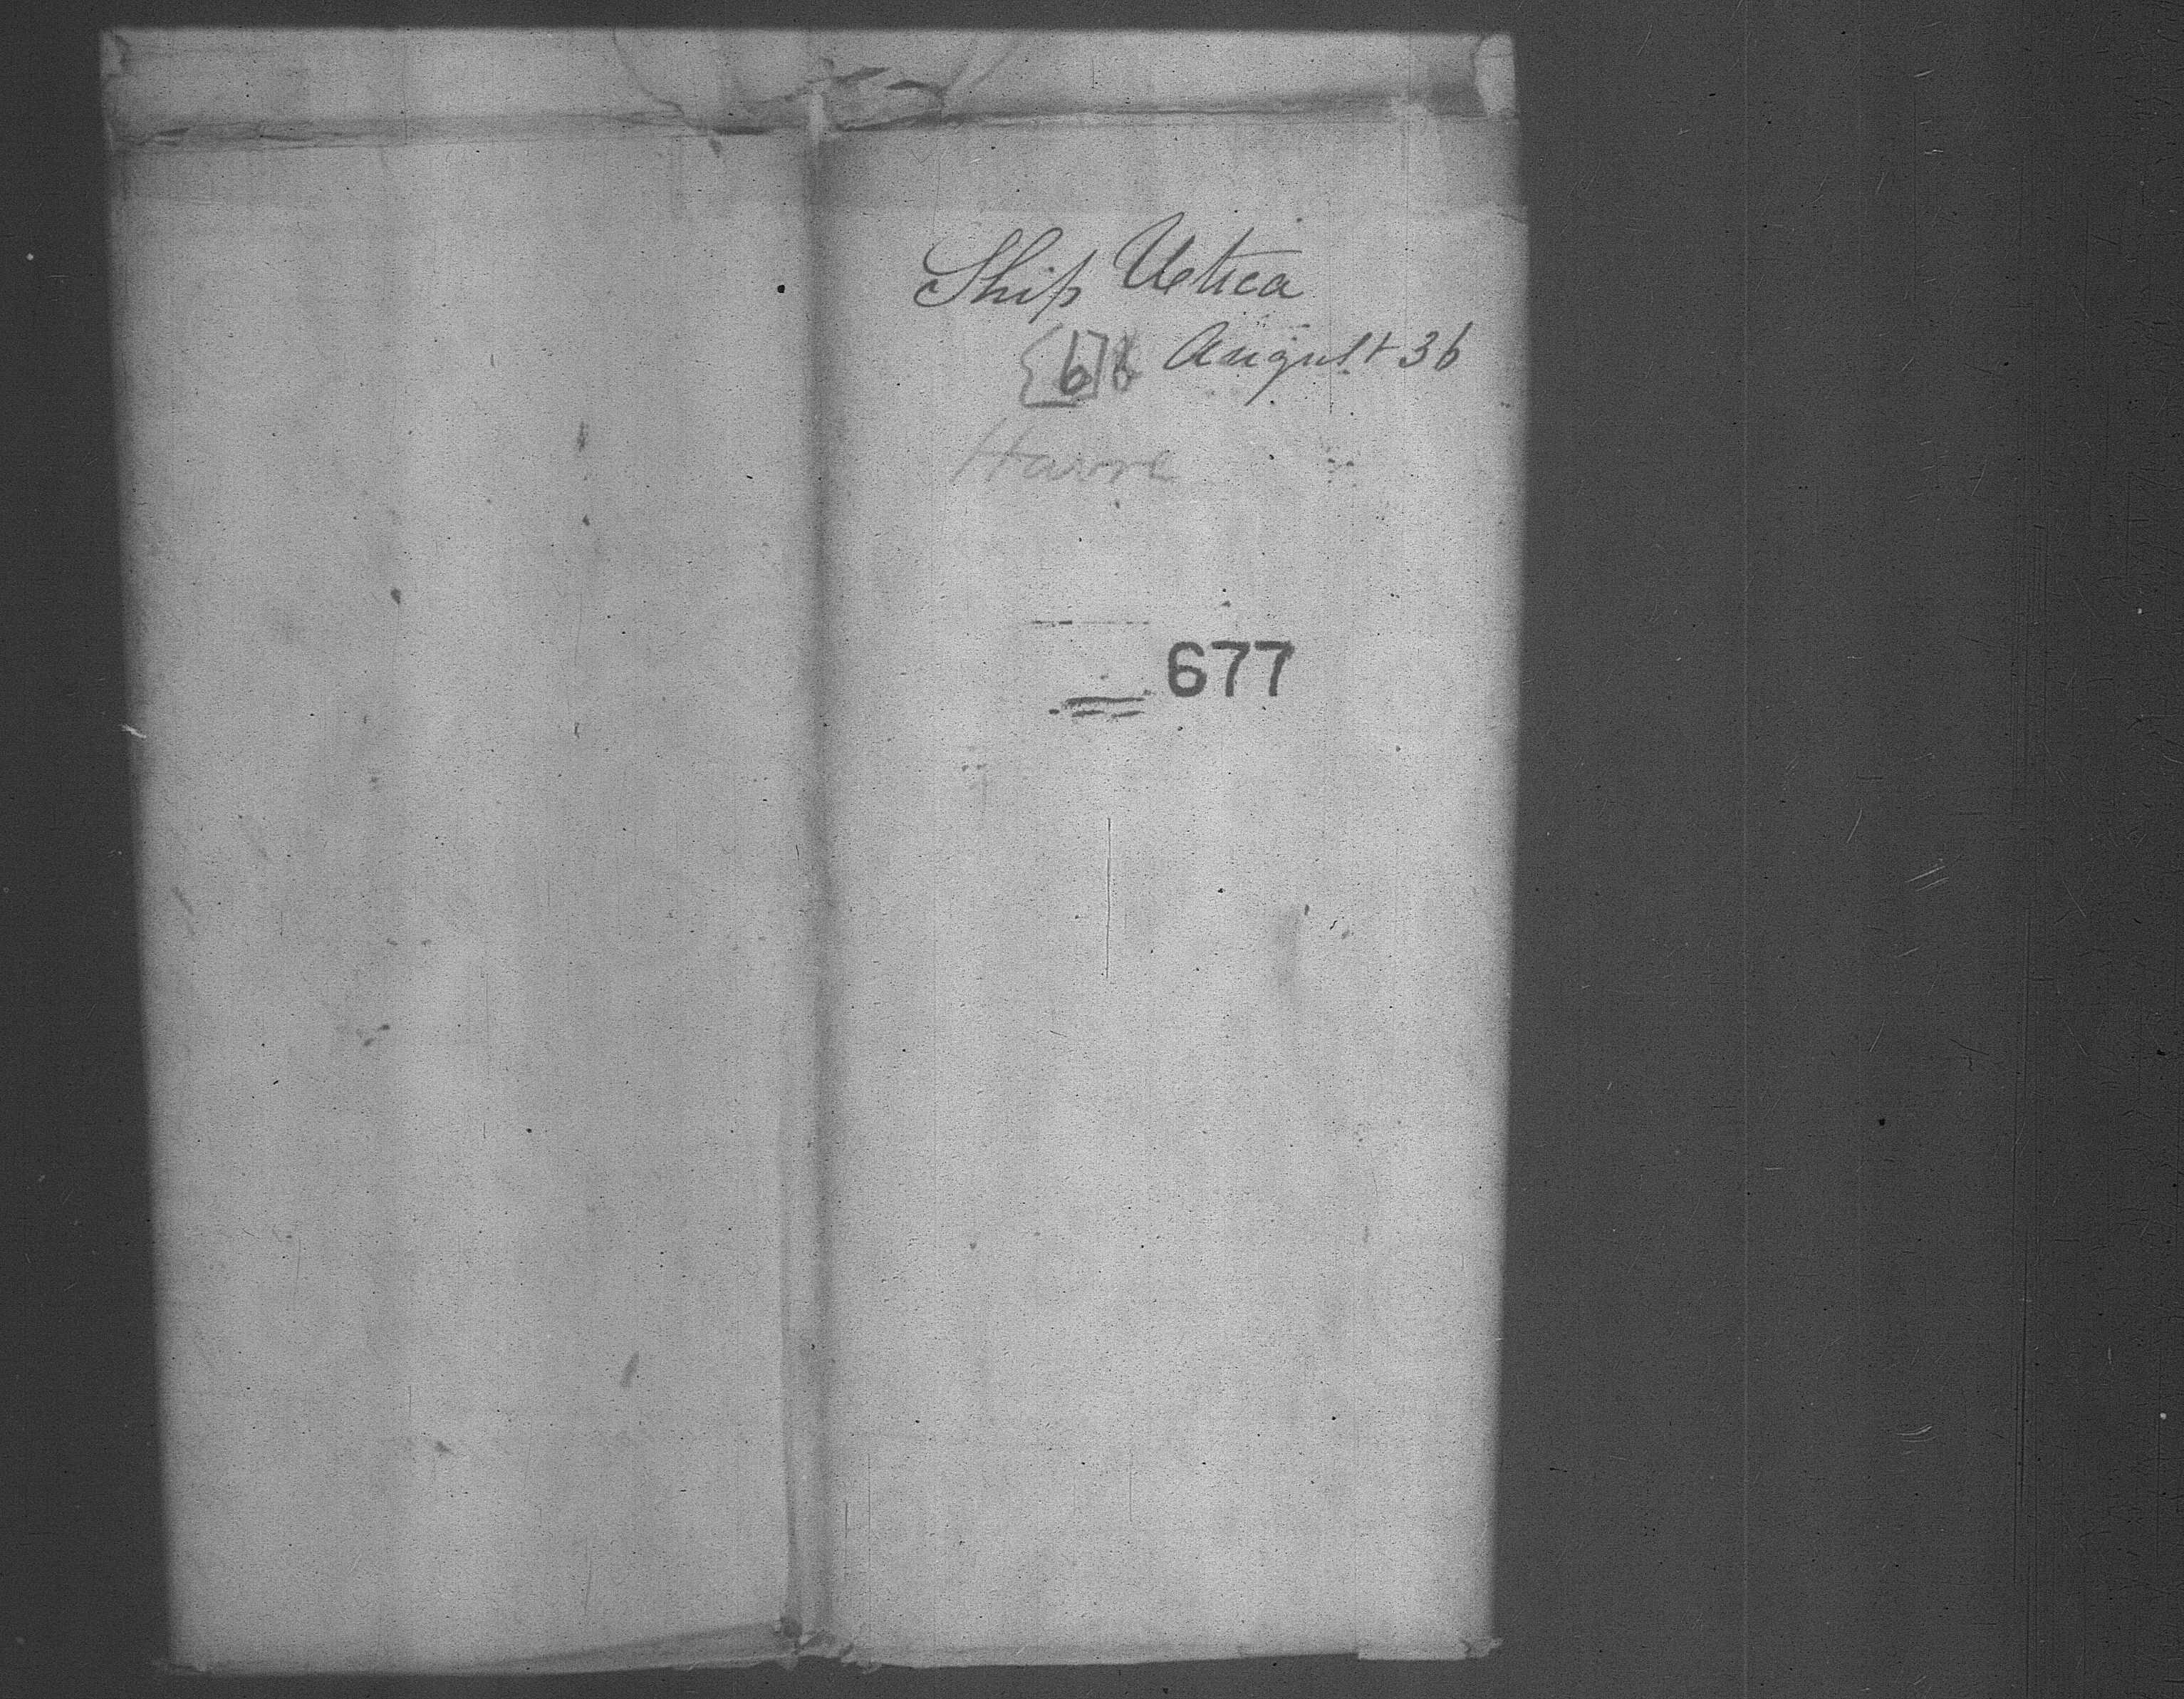 Ship Utica
6 August 36
Havre
677